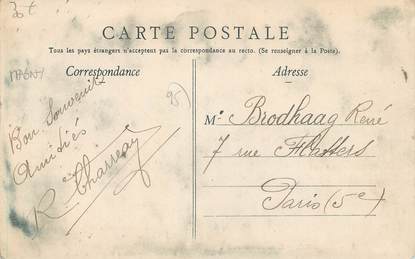 30€
CARTE POSTALE
Tous les pays étrangers n'acceptent pas la correspondance au recto. (Se renseigner à la Poste).
Correspondance
Adresse
95
Bon Souvenir
Amitiés
R. Charreay
Mr Brodhaag René
7 rue Flatters
Paris (5e)